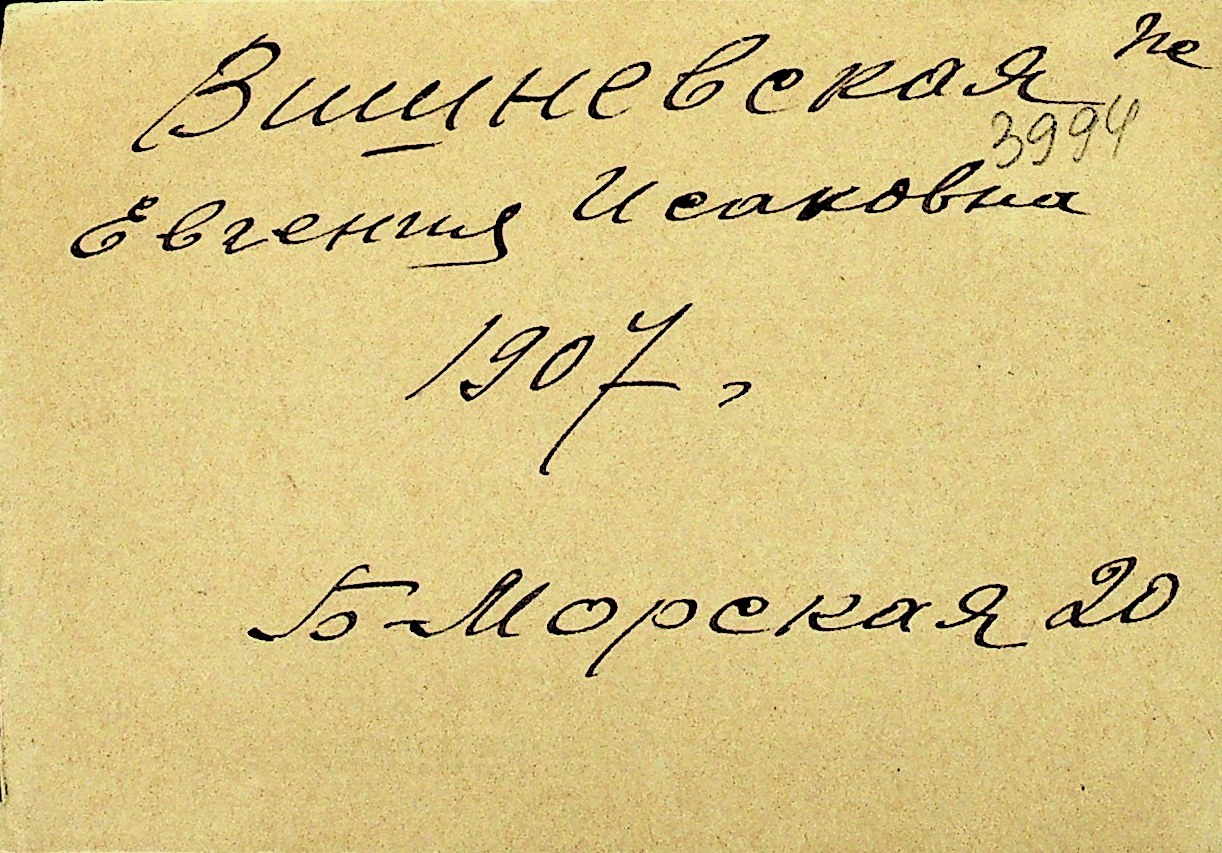 Вишневская
3994
Евгения Исаковна
1907 г
Б-Морская 20